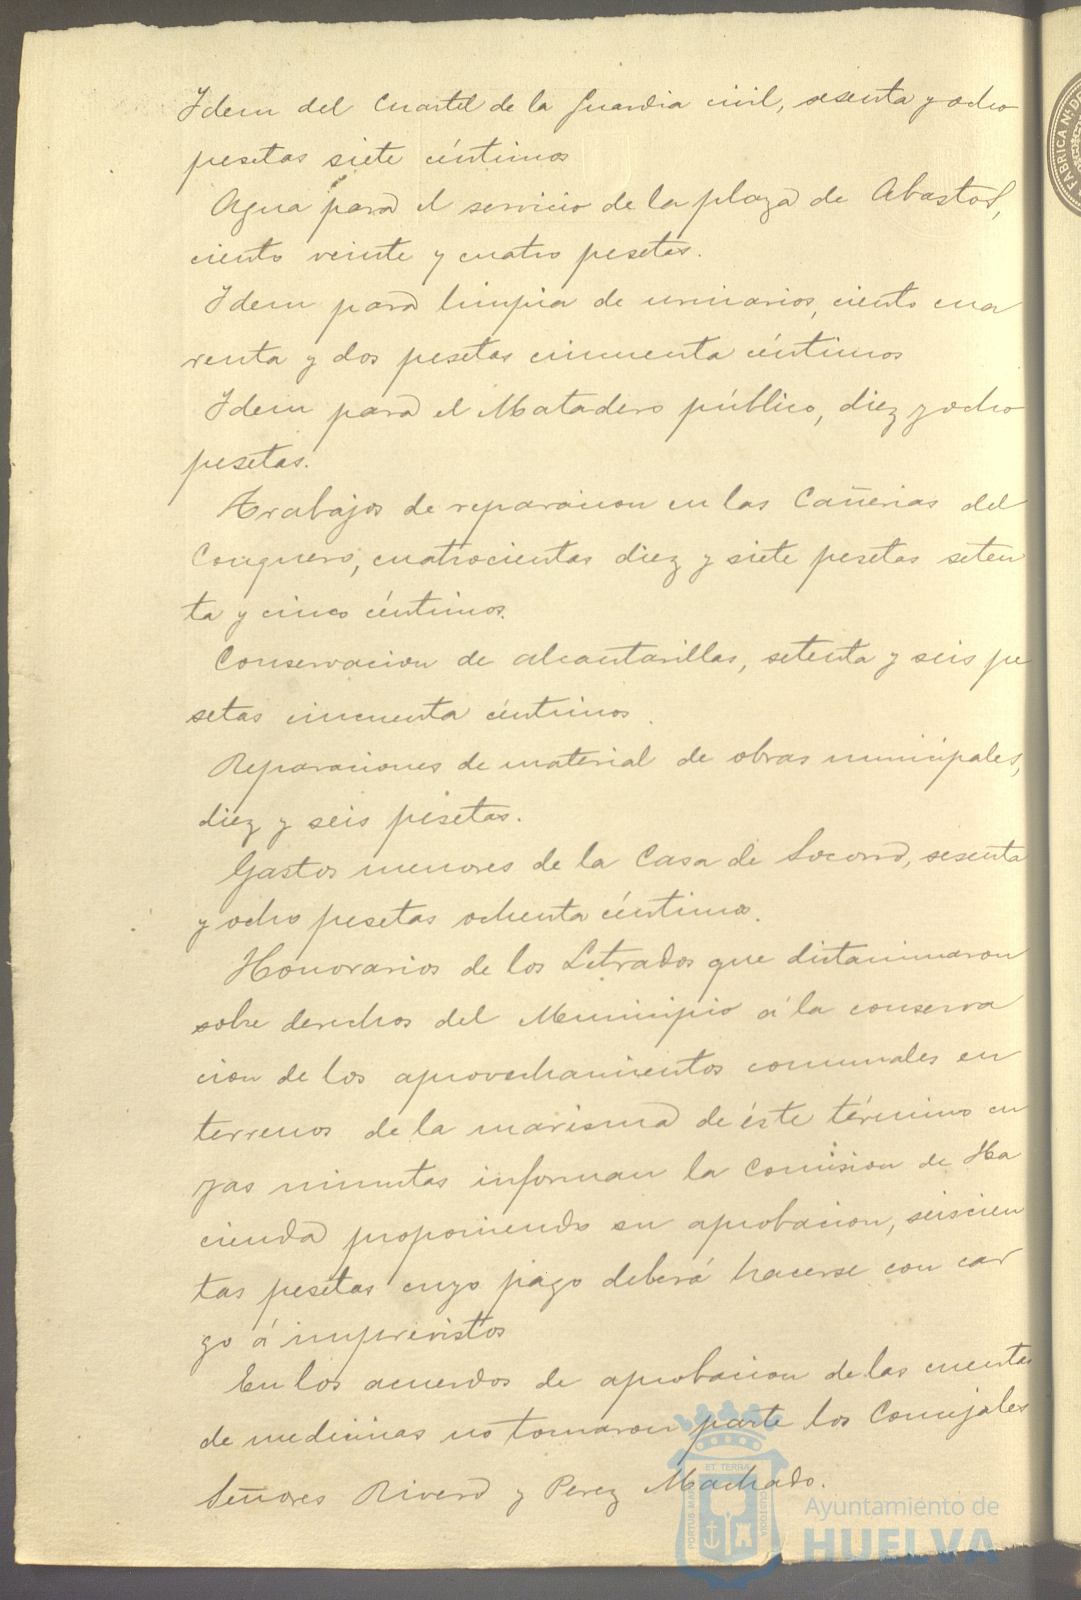 Idem del Cuartel de la Guardia civil, sesenta y ocho
pesetas siete céntimos
Agua para el servicio de la plaza de Abastos,
ciento veinte y cuatro pesetas.
Idem para limpia de urinarios, ciento cua
renta y dos pesetas cincuenta céntimos
Idem para el Matadero público, diez y ocho
pesetas.
Trabajos de reparacion en las Cañerias del
Conquero, cuatrocientas diez y siete pesetas seten
ta y cinco céntimos.
Conservacion de alcantarillas, setenta y seis pe
setas cincuenta céntimos.
Reparaciones de material de obras municipales,
diez y seis pesetas.
Gastos menores de la Casa de Socorro, sesenta
y ocho pesetas ochenta céntimos.
Honorarios de los Letrados que dictaminaron
sobre derechos del Municipio á la conserva
cion de los aprovechamientos comunales en
terrenos de la marisma de éste término cu
yas minutas informan la Comision de Ha
cienda proponiendo su aprobacion, seiscien
tas pesetas cuyo pago deberá hacerse con car
go á imprevistos
En los acuerdos de aprobacion de las cuentas
de medicinas no tomaron parte los Concejales
Señores Rivero y Perez Machado.
ET TERRA
PORTUS MARIS
CUSTODIA
Ayuntamiento de
HUELVA
FABRICA Nl. DO